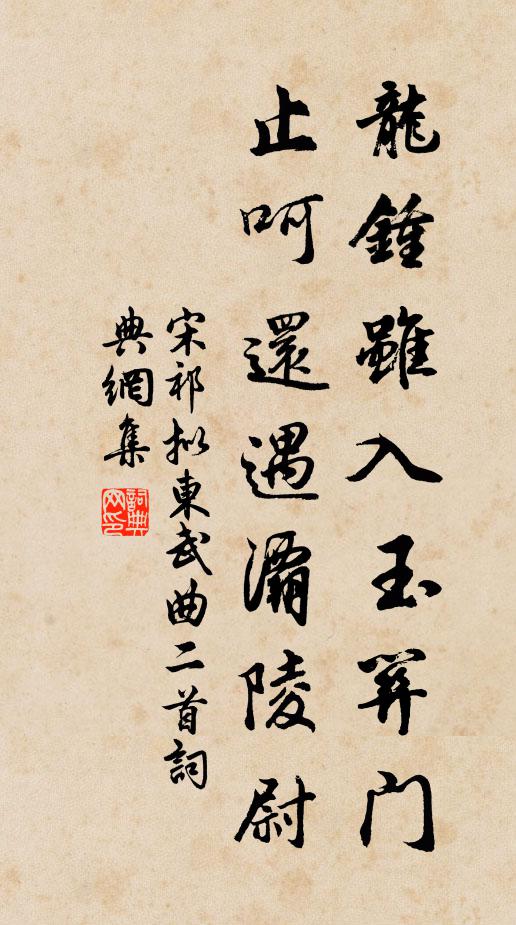 龍鍾雖入玉關門
止呵還遇灞陵尉
宋祁擬東武曲二首詞
典網集
詞典網印